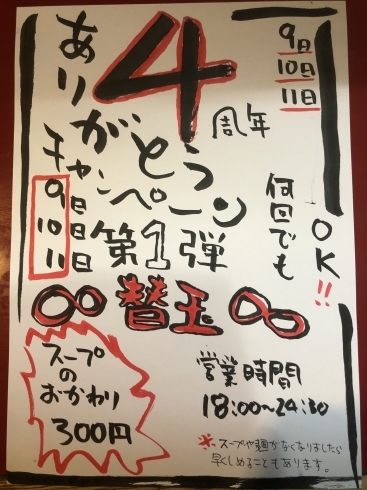 4周年
ありがとう
キャンペーン
第1弾
9日
10日
11日
9日
10日
11日
何回でも
OK!!
∞替玉∞
スープ
の
おかわり
300円
営業時間
18:00〜24:30
※スープや麺がなくなりましたら
早くしめることもあります。